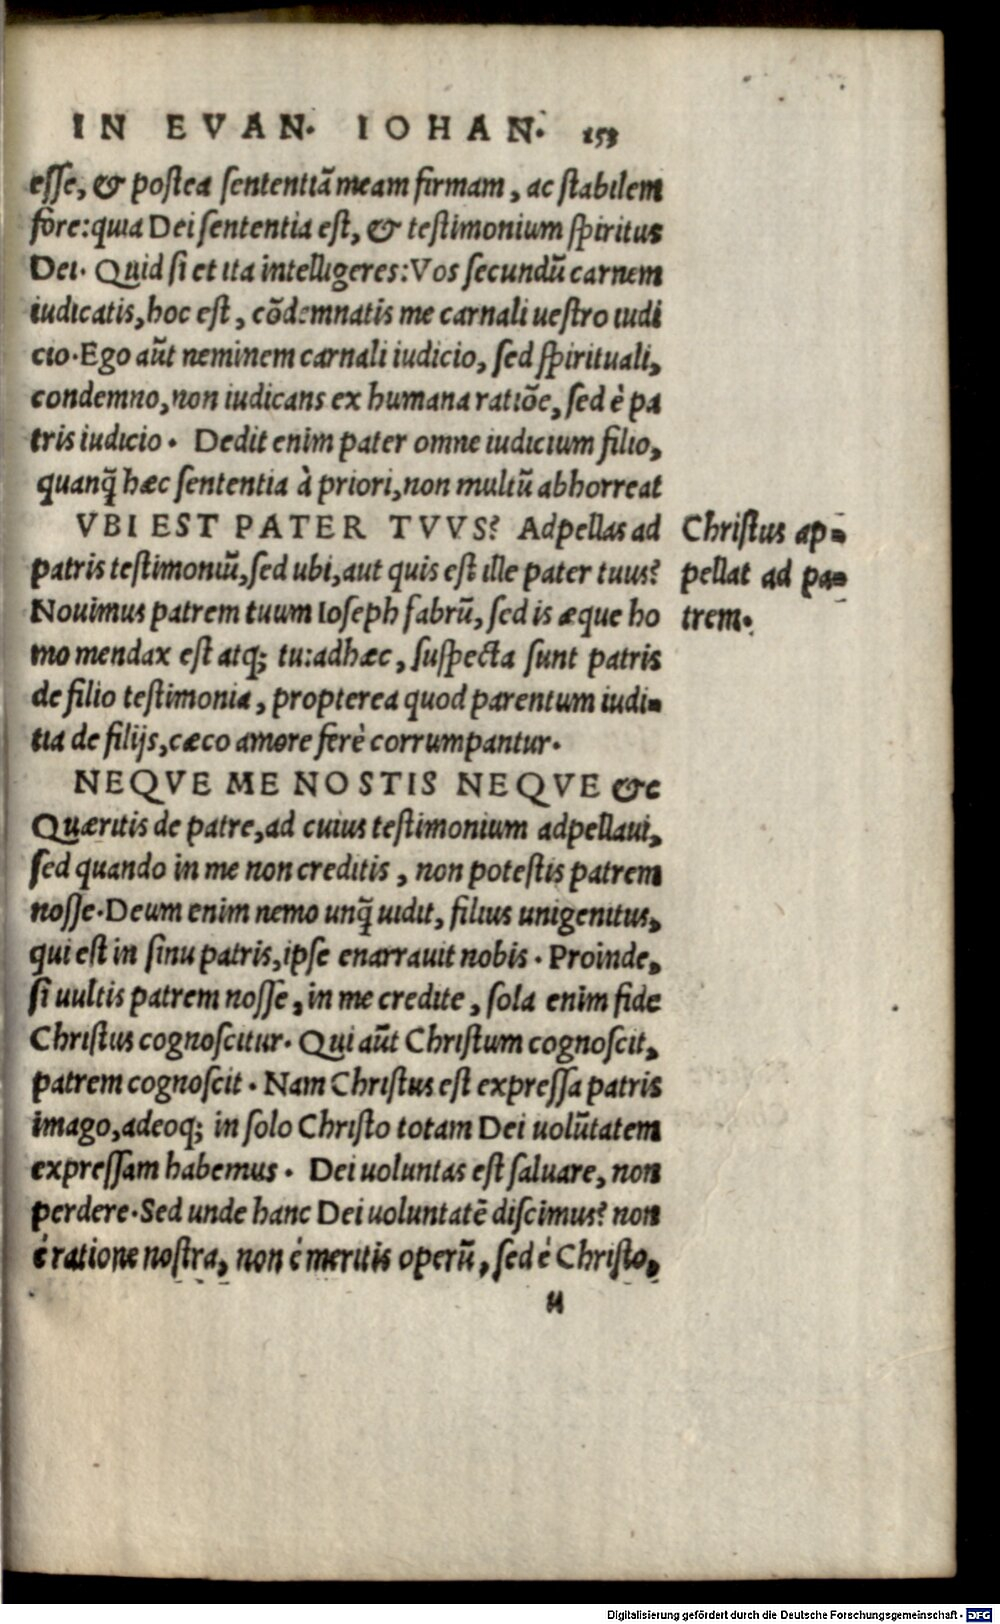 IN EVAN. IOHAN. 153
esse, & postea sententiā meam firmam, ac stabilem
fore: quia Dei sententia est, & testimonium spiritus
Dei. Quid si et ita intelligeres: Vos secundū carnem
iudicatis, hoc est, cōdemnatis me carnali uestro iudi
cio. Ego aūt neminem carnali iudicio, sed spirituali,
condemno, non iudicans ex humana ratiōe, sed è pa
tris iudicio. Dedit enim pater omne iudicium filio,
quanq̄ hæc sententia à priori, non multū abhorreat
VBI EST PATER TVVS? Adpellas ad
patris testimoniū, sed ubi, aut quis est ille pater tuus?
Nouimus patrem tuum Ioseph fabrū, sed is æque ho
mo mendax est atq; tu: adhæc, suspecta sunt patris
de filio testimonia, propterea quod parentum iudi-
tia de filijs, cæco amore ferè corrumpantur.
NEQVE ME NOSTIS NEQVE &c
Quæritis de patre, ad cuius testimonium adpellaui,
sed quando in me non creditis, non potestis patrem
nosse. Deum enim nemo unq̄ uidit, filius unigenitus,
qui est in sinu patris, ipse enarrauit nobis. Proinde,
si uultis patrem nosse, in me credite, sola enim fide
Christus cognoscitur. Qui aūt Christum cognoscit,
patrem cognoscit. Nam Christus est expressa patris
imago, adeoq; in solo Christo totam Dei uolūtatem
expressam habemus. Dei uoluntas est saluare, non
perdere. Sed unde hanc Dei uoluntatē discimus? non
è ratione nostra, non è meritis operū, sed è Christo,
u
Christus ap-
pellat ad pa-
trem.
Digitalisierung gefördert durch die Deutsche Forschungsgemeinschaft - DFG